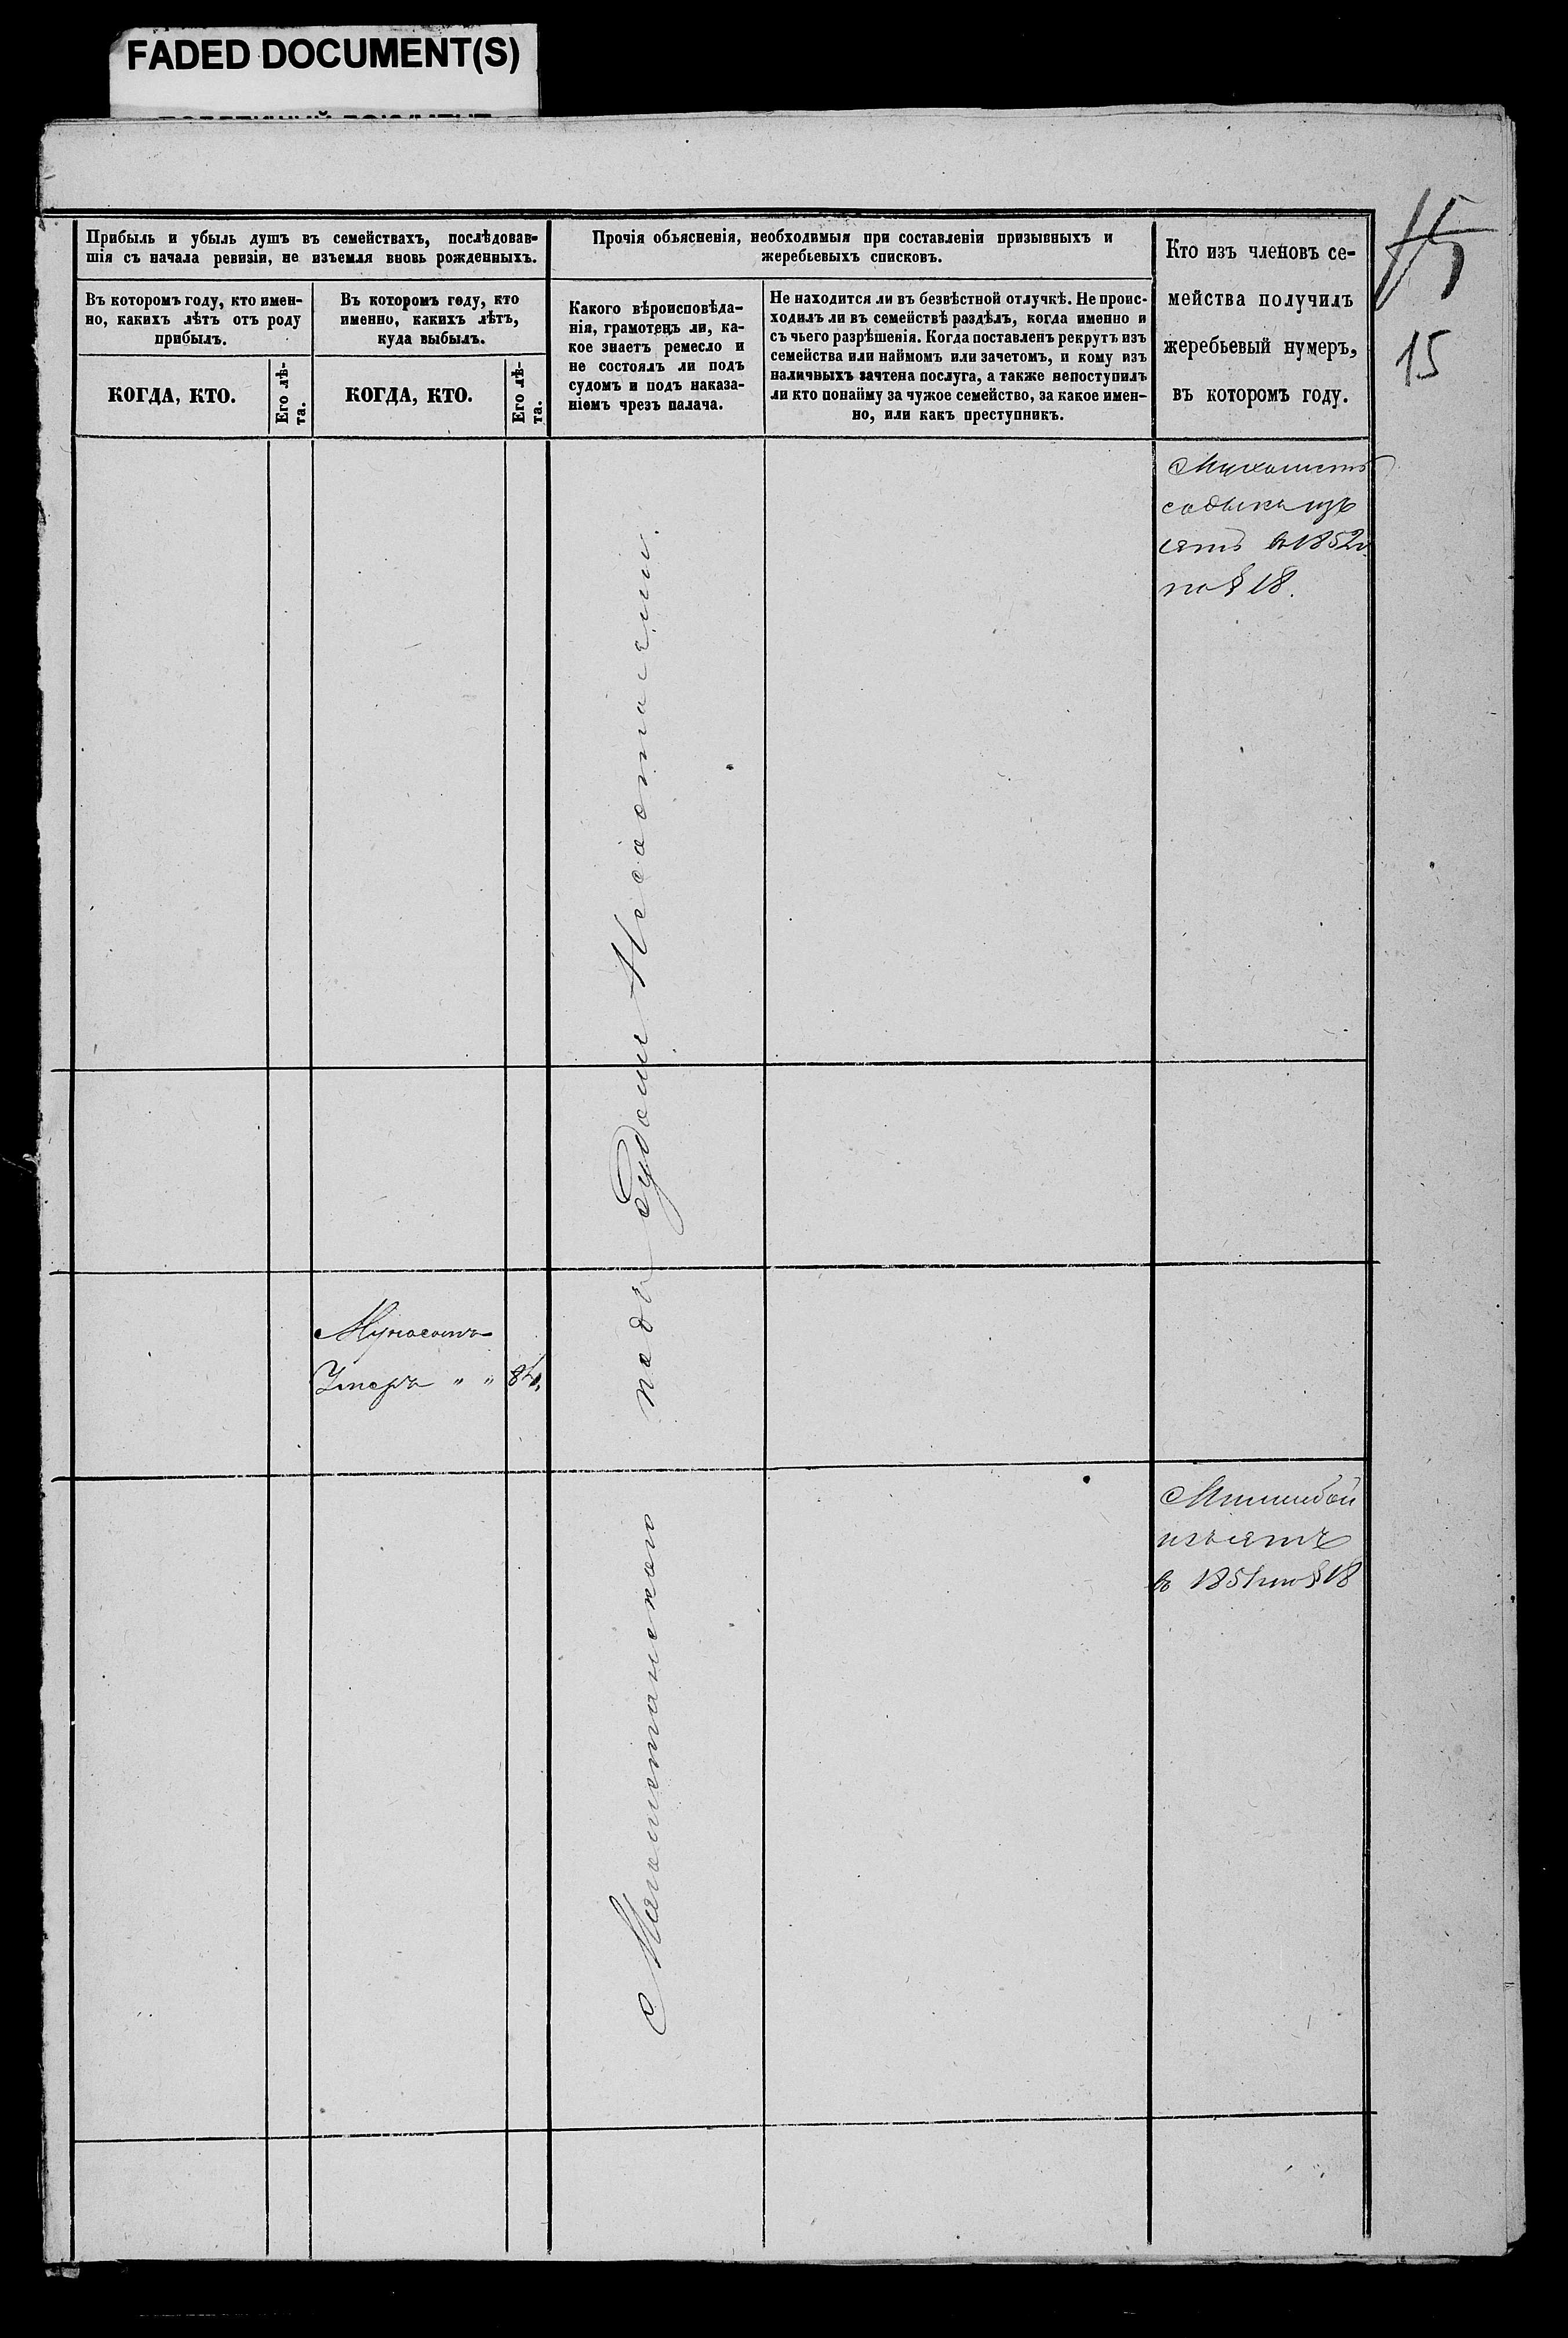 FADED DOCUMENT(S)
15
15
Прибыль и убыль душъ въ семействахъ, послѣдовав-
шія съ начала ревизіи, не изъемля вновь рожденныхъ.
Въ которомъ году, кто имен-
но, какихъ лѣтъ отъ роду
прибылъ.
КОГДА, КТО.
Его лѣ-
та.
Въ которомъ году, кто
именно, какихъ лѣтъ,
куда выбылъ.
КОГДА, КТО.
Его лѣ-
та.
Прочія объясненія, необходимыя при составленіи призывныхъ и
жеребьевыхъ списковъ.
Какого вѣроисповѣда-
нія, грамотецъ ли, ка-
кое знаетъ ремесло и
не состоялъ ли подъ
судомъ и подъ наказа-
ніемъ чрезъ палача.
Не находится ли въ безвѣстной отлучкѣ. Не проис-
ходилъ ли въ семействѣ раздѣлъ, когда именно и
съ чьего разрѣшенія. Когда поставленъ рекрутъ изъ
семейства или наймомъ или зачетомъ, и кому изъ
наличныхъ зачтена послуга, а также непоступилъ
ли кто понайму за чужое семейство, за какое имен-
но, или какъ преступникъ.
Кто изъ членовъ се-
мейства получилъ
жеребьевый нумеръ,
въ которомъ году.
Мухаметъ
садыкъ изъ
ятъ въ 1852г
по § 18.
Умеръ " " 84.
Магометанскаго подъ судомъ Несостояли.
изъятъ
в 1851 по § 18